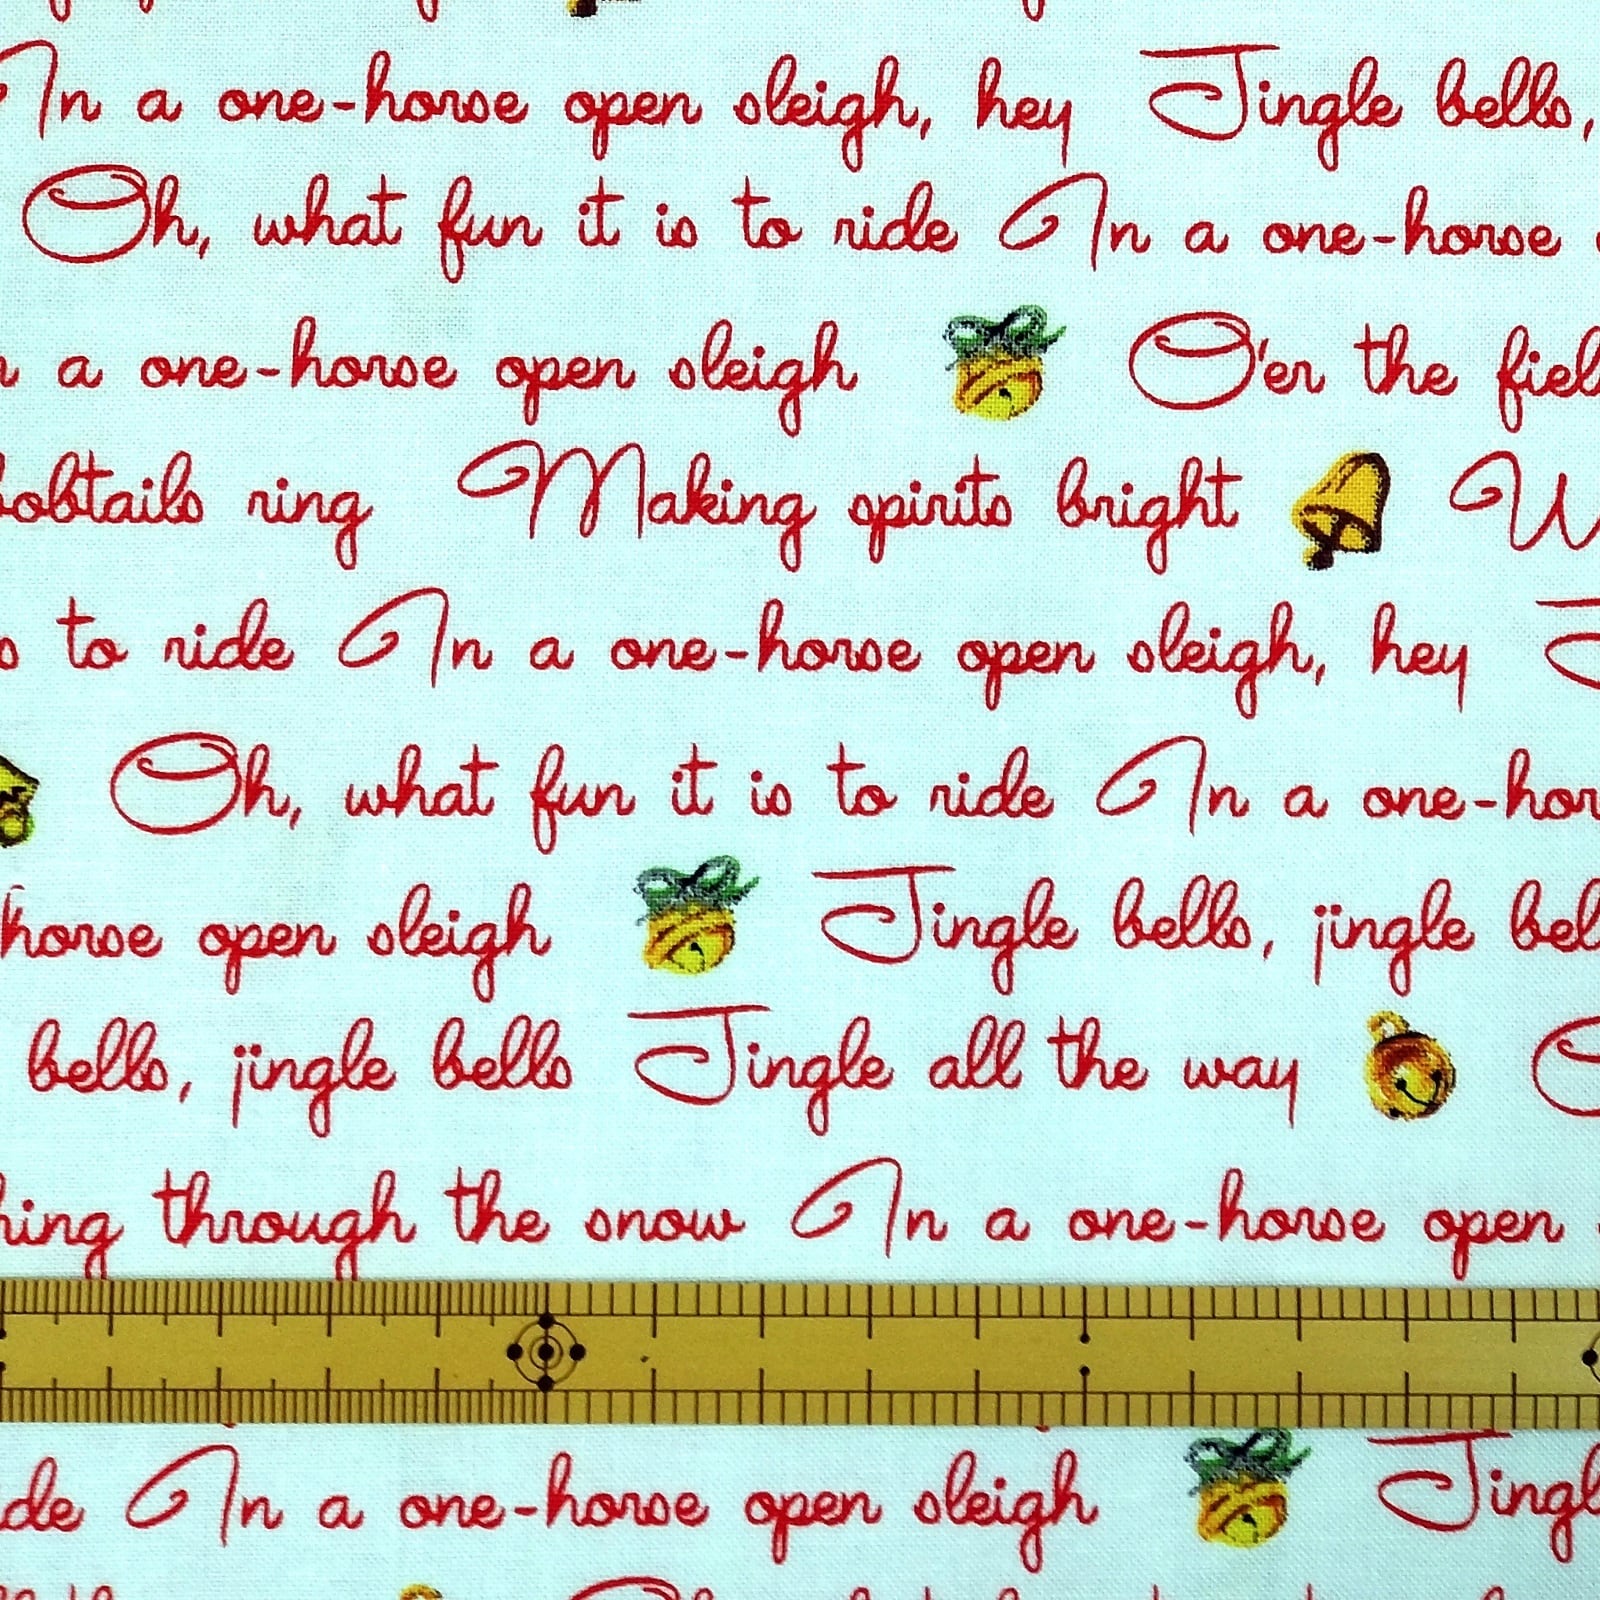 In a one-horse open sleigh, hey Jingle bells,
Oh, what fun it is to ride In a one-horse
a one-horse open sleigh O'er the fiel
bobtails ring Making spirits bright W
to ride In a one-horse open sleigh, hey J
Oh, what fun it is to ride In a one-hor
horse open sleigh Jingle bells, jingle bel
bells, jingle bells Jingle all the way
hing through the snow In a one-horse open
de In a one-horse open sleigh Jingl